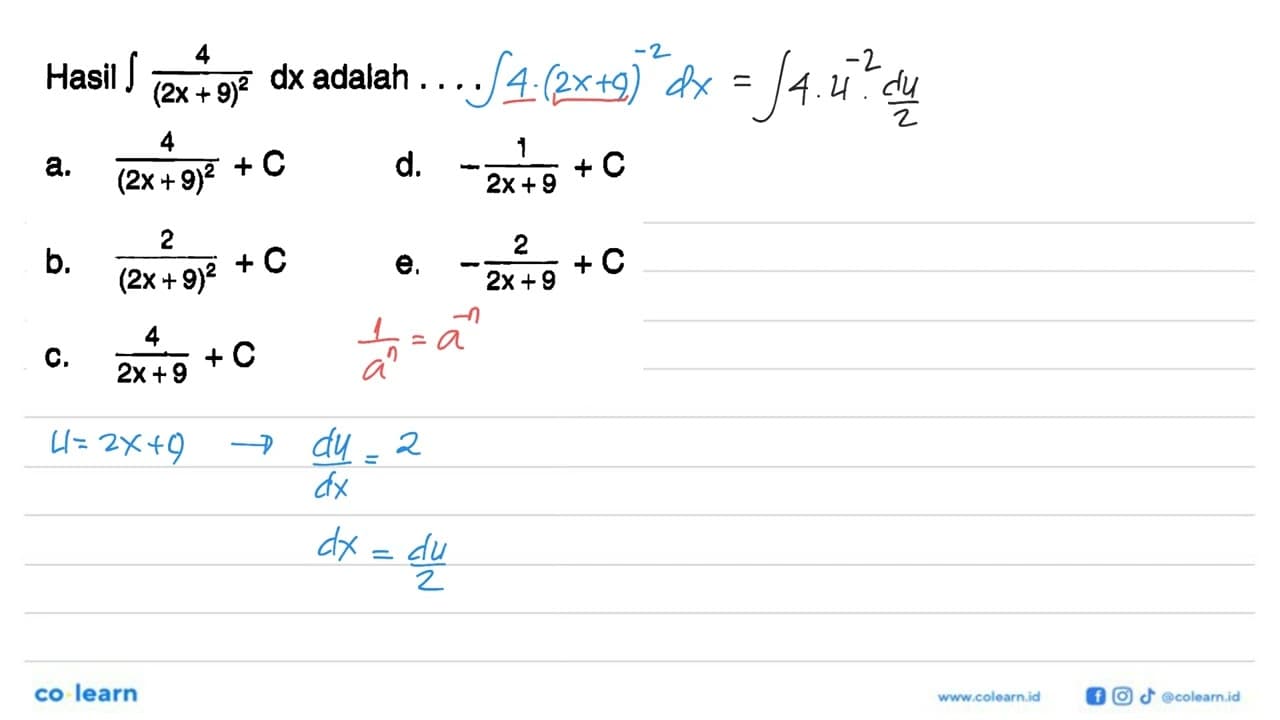 Hasil ∫ 4/(2x + 9)² dx adalah . . . . ∫4.(2x+9)⁻² dx = ∫4.u⁻². du/2
a. 4/(2x + 9)² + C d. -1/(2x + 9) + C
b. 2/(2x + 9)² + C e. -2/(2x + 9) + C
c. 4/(2x + 9) + C 1/aⁿ = a⁻ⁿ
u = 2x+9 → du/dx = 2
dx = du/2
co learn www.colearn.id @colearn.id